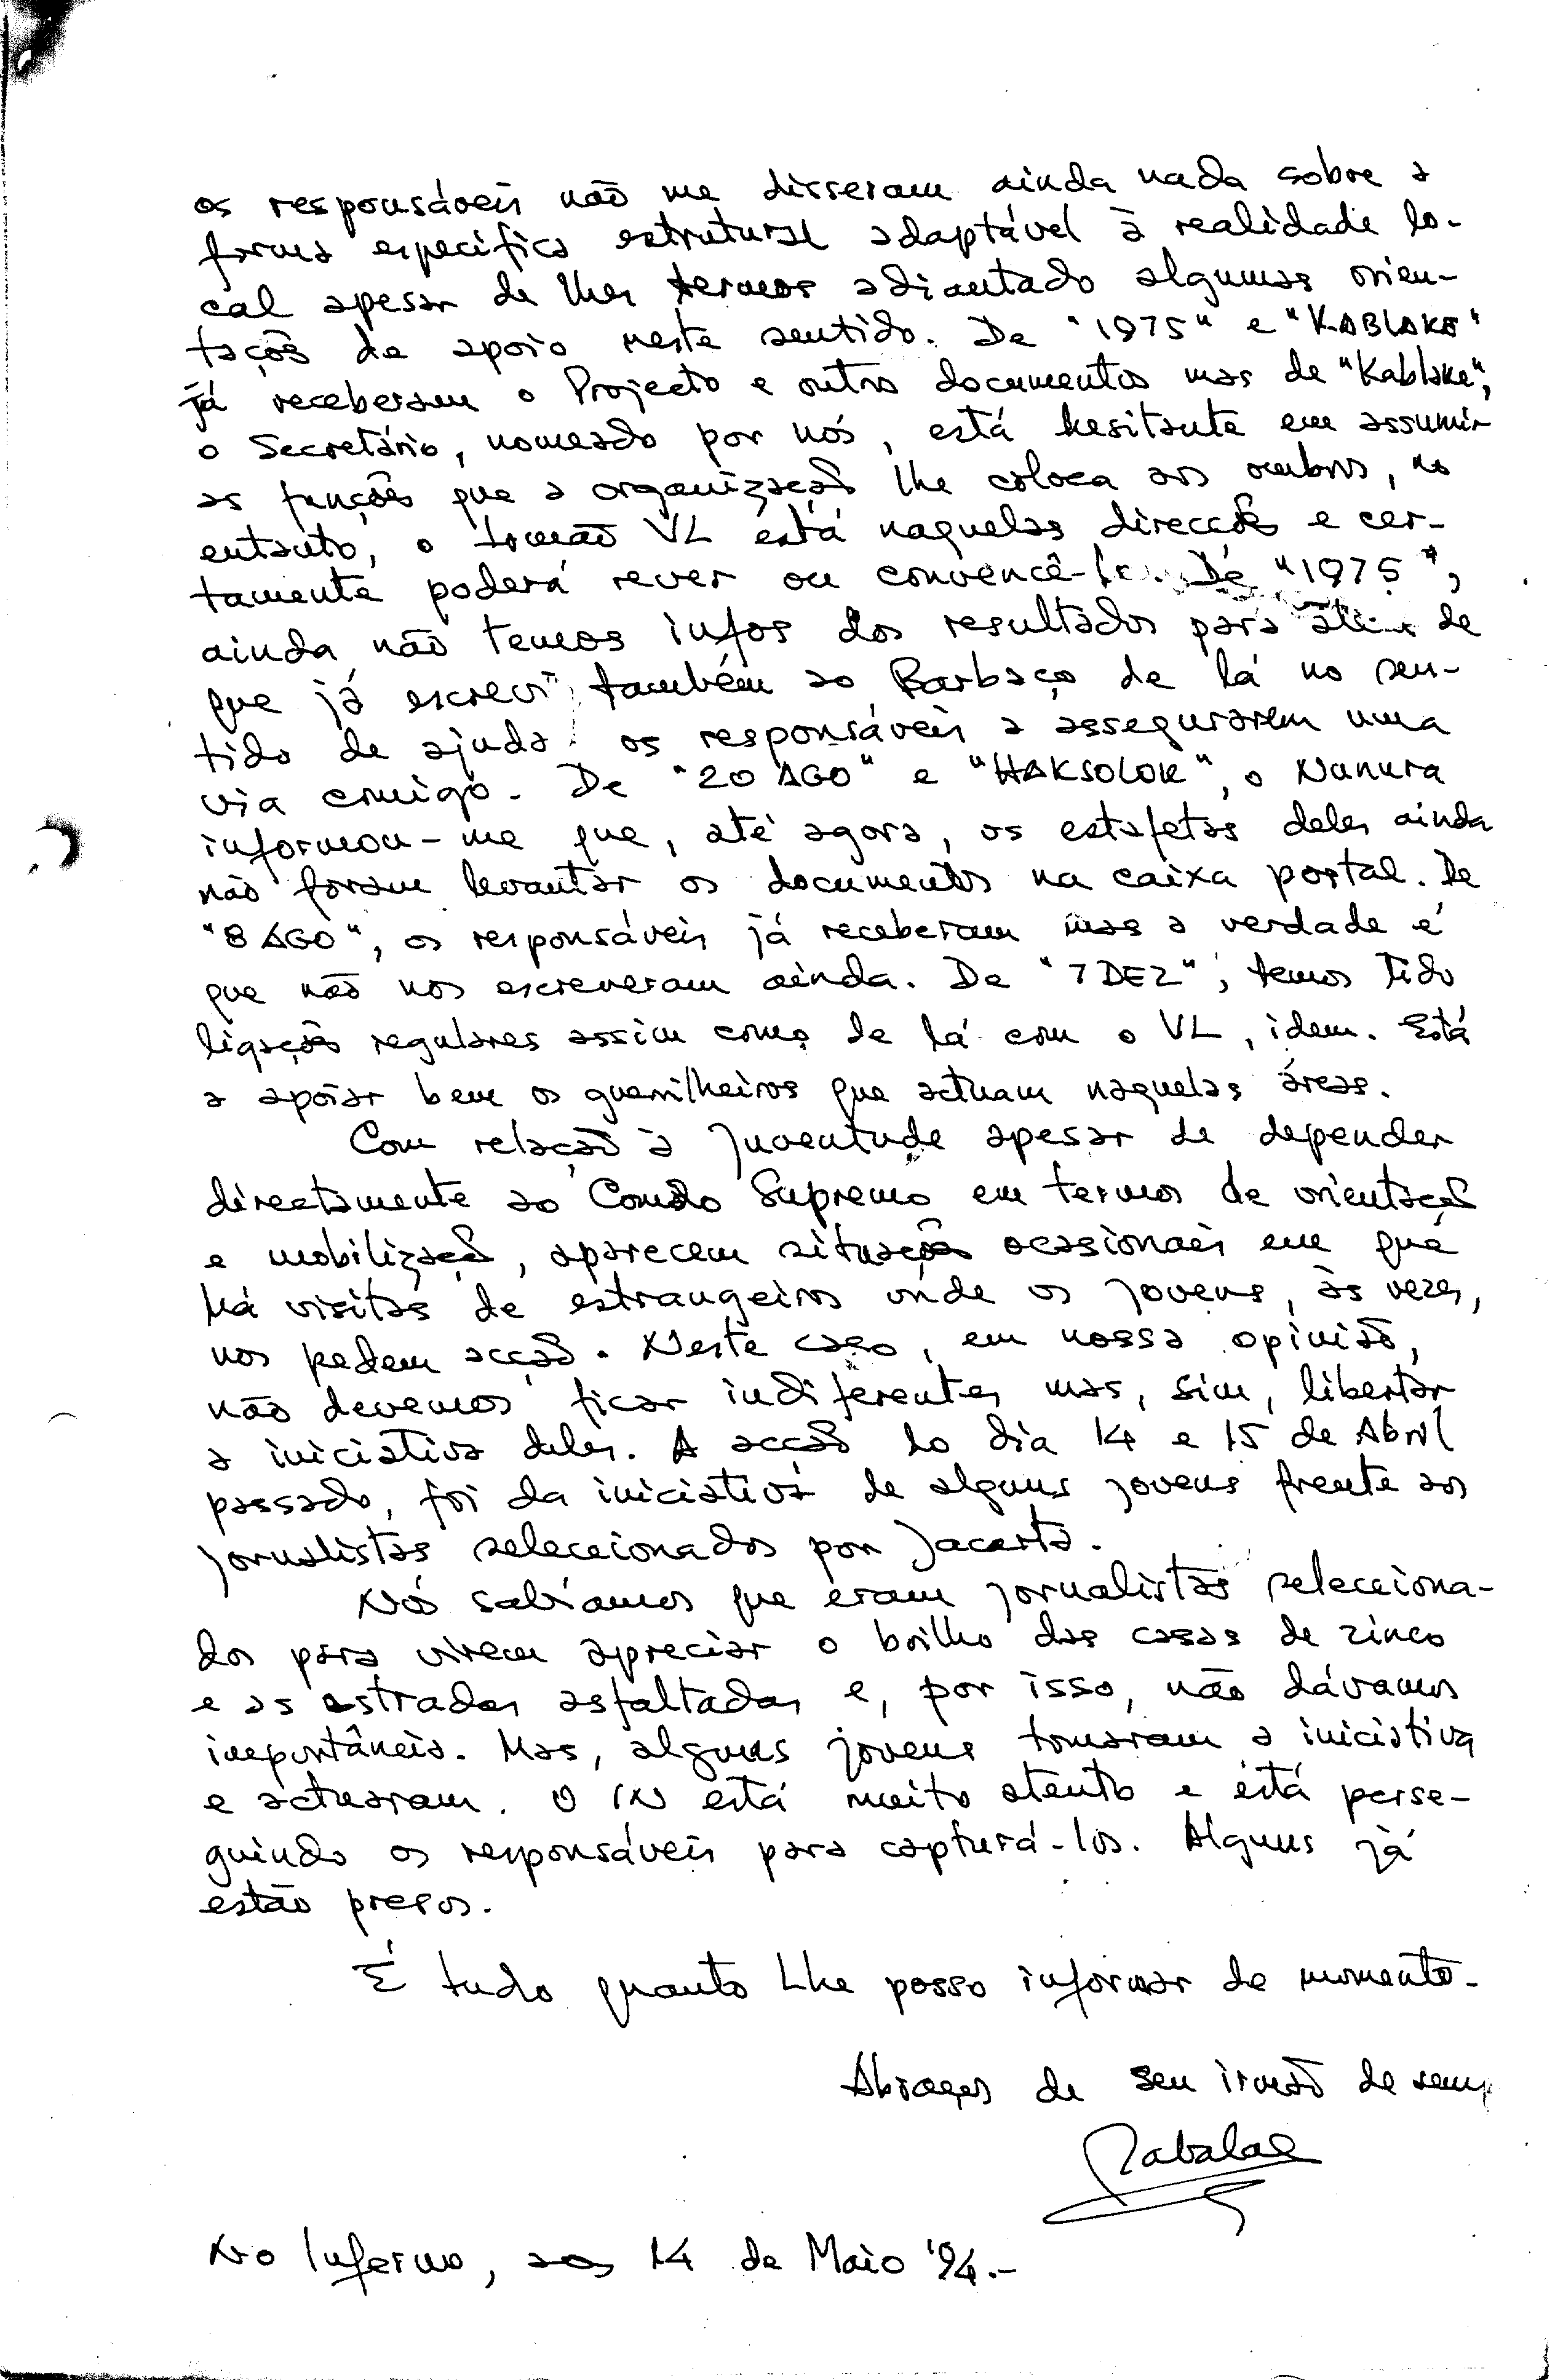 os responsáveis não me disseram ainda nada sobre a
forma específica estrutural adaptável à realidade lo-
cal apesar de lhes termos adiantado algumas orien-
tações de apoio neste sentido. De "1975" e "KABLAKE"
já receberam o Projecto e outros documentos mas de "Kablake",
o Secretário, nomeado por nós, está hesitante em assumir
as funções que a organização lhe coloca aos ombros, no
entanto, o irmão VL está naquelas direcções e cer-
tamente poderá rever ou convencê-lo. De "1975",
ainda não temos infos dos resultados para além de
que já escrevi também ao Barbaço de lá no sen-
tido de ajuda os responsáveis a assegurarem uma
via comigo. De "20 AGO" e "HAKSOLOK", o Nunura
informou-me que, até agora, os estafetas deles ainda
não foram levantar os documentos na caixa postal. De
"8 AGO", os responsáveis já receberam mas a verdade é
que não nos escreveram ainda. De "7 DEZ", temos tido
ligações regulares assim como de lá com o VL, idem. Está
a apoiar bem os guerrilheiros que actuam naquelas áreas.
Com relação à Juventude apesar de depender
directamente ao Comdo Supremo em termos de orientação
e mobilização, aparecem situações ocasionais em que
há visitas de estrangeiros onde os jovens, às vezes,
nos pedem acção. Neste caso, em nossa opinião,
não devemos ficar indiferentes mas, sim, libertar
a iniciativa deles. A acção do dia 14 e 15 de Abril
passado, foi da iniciativa de alguns jovens frente aos
jornalistas seleccionados por Jacarta.
Nós sabíamos que eram jornalistas selecciona-
dos para virem apreciar o brilho das casas de zinco
e as estradas asfaltadas e, por isso, não dávamos
importância. Mas, alguns jovens tomaram a iniciativa
e actuaram. O IN está muito atento e está perse-
guindo os responsáveis para capturá-los. Alguns já
estão presos.
É tudo quanto Lhe posso informar de momento.
Abraços de seu irmão de
Sabalae
No Inferno, aos 14 de Maio '94.-